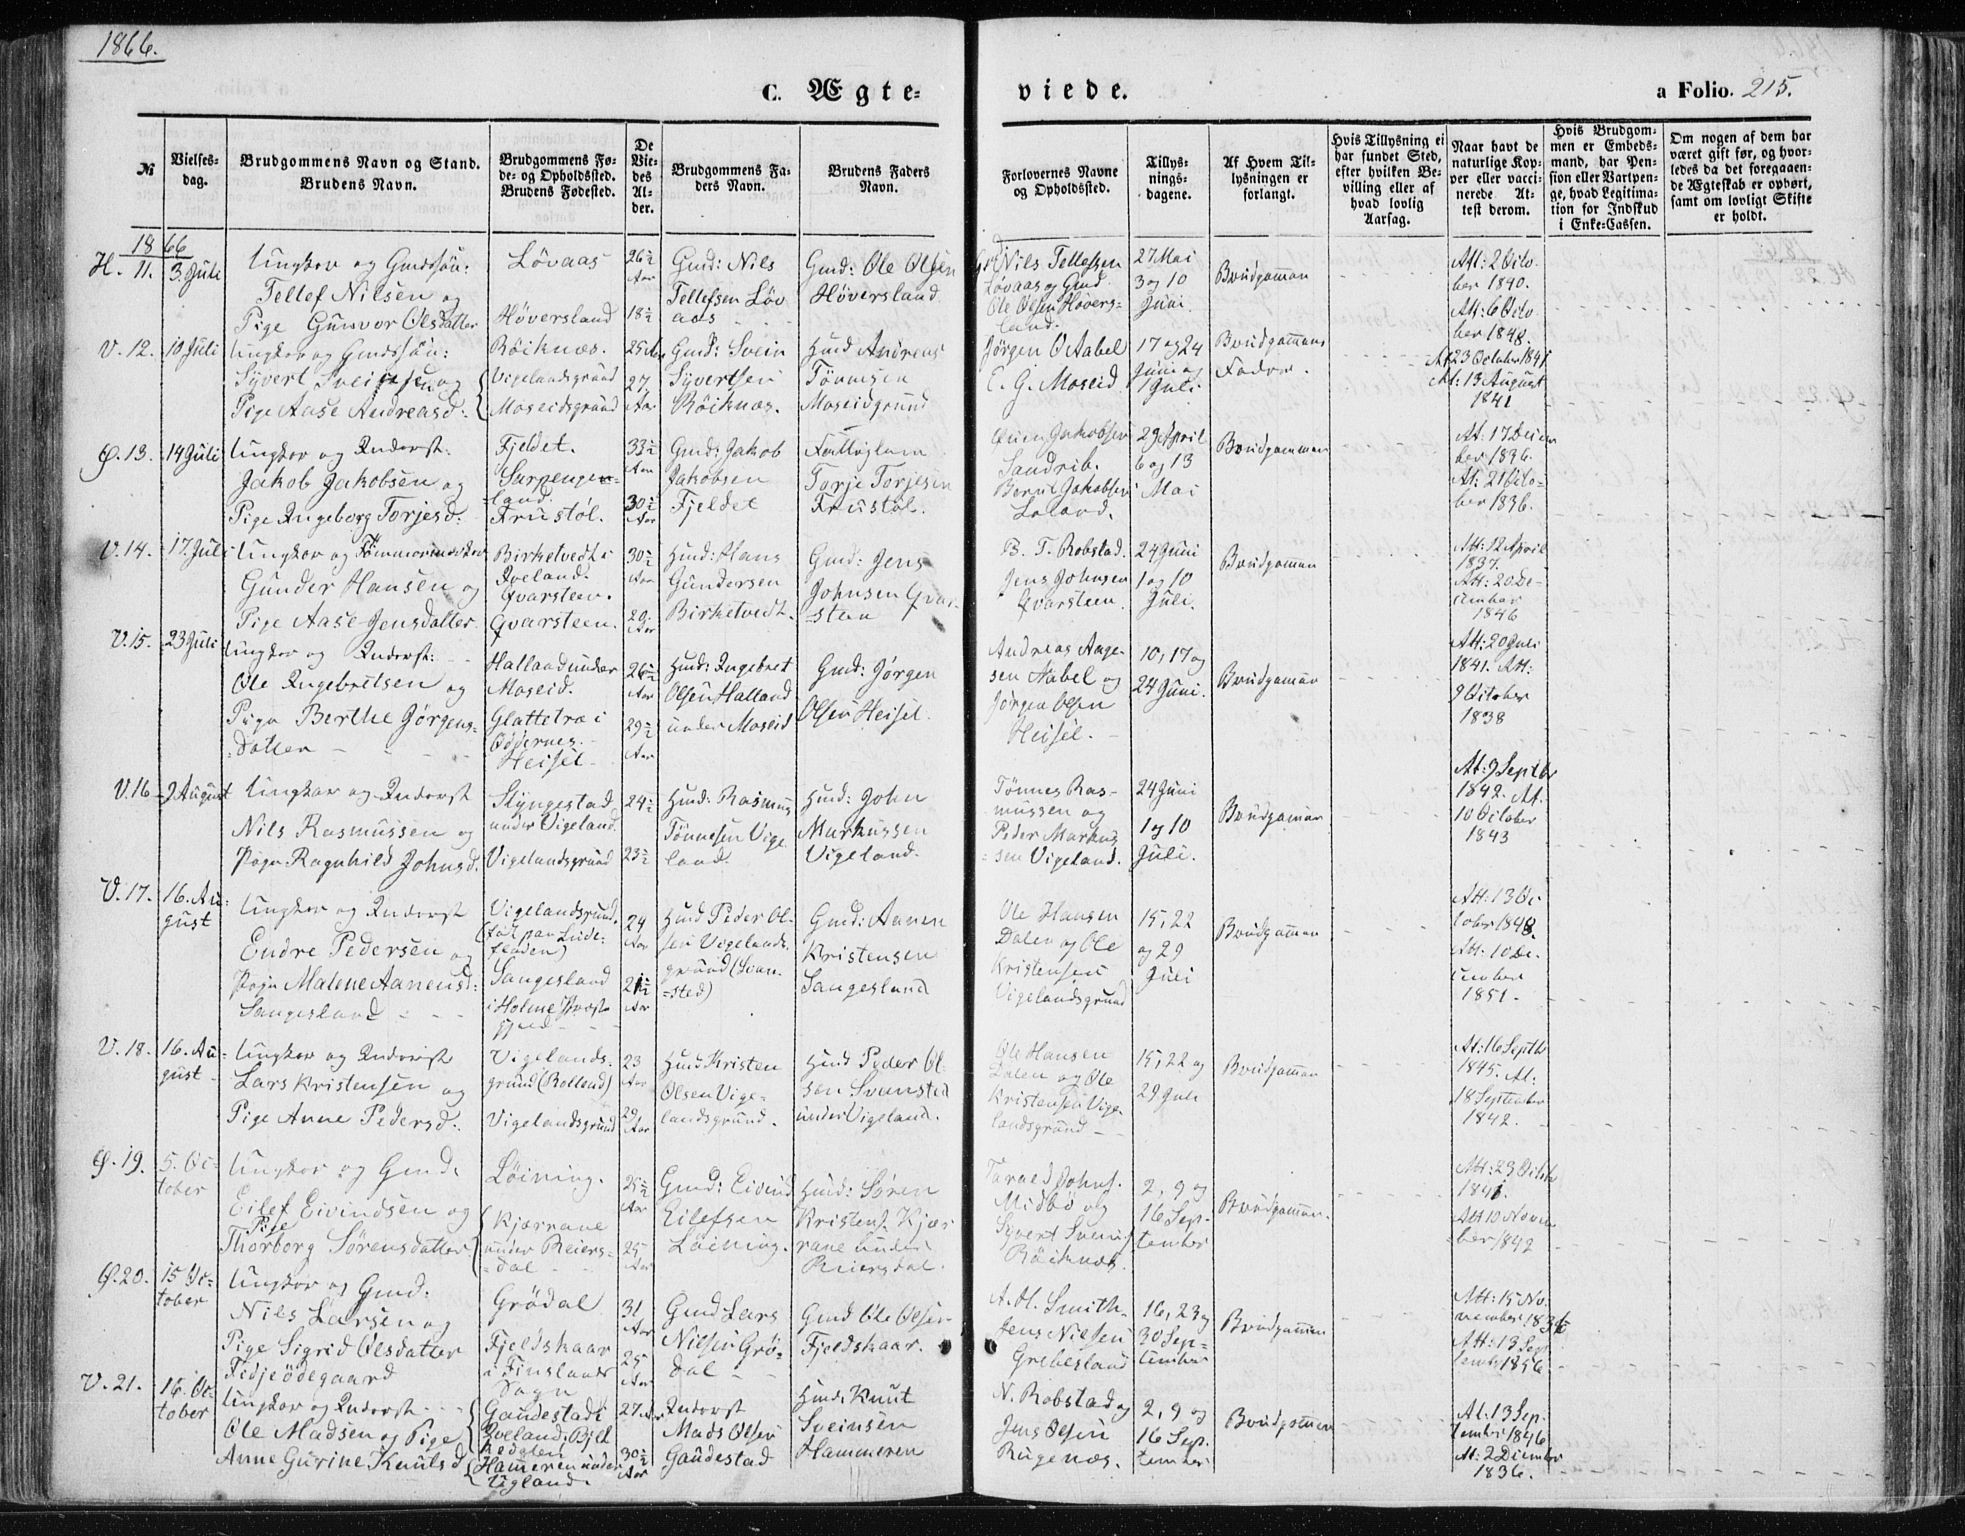 1866.
C. Ægte-
viede.
a Folio. 215.
№
Vielses-
dag.
Brudgommens Navn og Stand.
Brudens Navn.
Brudgommens Fø-
de- og Opholdssted.
Brudens Fødested.
De
Vie-
des
Al-
der.
Brudgommens Fa-
ders Navn.
Brudens Faders
Navn.
Forlovernes Navne
og Opholdssted.
Tillys-
nings-
dagene.
Af Hvem Til-
lysningen er
forlangt.
Hvis Tillysning ei
har fundet Sted,
efter hvilken Be-
villing eller af
hvad lovlig
Aarsag.
Naar havt de
naturlige Kop-
per eller vacci-
nerede At-
test derom.
Hvis Brudgom-
men er Embeds-
mand, har Pen-
sion eller Vartpen-
ge, hvad Legitima-
tion for Indskud
i Enke-Cassen.
Om nogen af dem har
været gift før, og hvor-
ledes da det foregaaen-
de Ægteskab er ophørt,
samt om lovligt Skifte
er holdt.
1866
H. 11.
3. Juli
Ungkar og Gmdssøn:
Tellef Nilsen og
Pige Gunvor Olsdatter
Løvaas
Høversland
26½
Aar
18½
Gmd: Nils
Tellefsen Løv
aas
Gmd: Ole Olsen
Høversland
Gd Nils Tellefsen
Løvaas og Gmd
Ole Olsen Høvers-
land.
27 Mai
3 og 10
Juni.
Brudgommen
Att: 2 Octo
ber 1840.
Att: 6 Octo
ber 1848.
V. 12.
10 Juli
Ungkar og Gmdssøn:
Syvert Sveinsen og
Pige Aase Andreasd:
Röiknæs.
Vigelandsgrund
Moseidsgrund
25 Aar
27
Aar
Gmd: Svein
Syvertsen
Röiknæs.
Husmd Andreas
Tönnesen
Moseidgrund
Jørgen O Aabel
E. G. Moseid
17 og 24
Juni og
1 Juli
Brudgommens
Fader.
At 23 October 1841
At: 13 August
1841
Ø. 13.
14 Juli
Ungkar og Inderst.
Jakob Jakobsen og
Pige Ingeborg Torjesd:
Fjeldet.
Sarpengen-
land.
Frustøl.
33½
Aar
30½
Aar
Gmd: Jakob
Jakobsen
Fjeldet
Fattiglem
Torje Torjesen
Frustøl.
Jakobsen
Sandrib.
Berul Jakobsen
Loland.
29 April
6 og 13
Mai
Brudgommen
At: 17 Decem
ber 1836.
At: 21 Octo-
ber 1836.
V. 14.
17. Juli
Ungkar og Tømmermand
Gunder Hansen og
Pige Aase Jensdatter
Birketvedt i
Iveland.
Qvarsteen.
Qvarsteen.
30½
Aar
20
Aar
Husmd: Hans
Gundersen
Birketvedt.
Gmd: Jens
Johnsen Qvar-
steen
B. T. Robstad.
Jens Johnsen
Qvarsteen.
24 Juni
1 og 10
Juli.
Brudgommen
Att: 12 April
1837.
Att: 20 De-
cember
1846
V. 15.
23 Juli
Ungkar og Inderst:
Ole Ingebretsen og
Pige Berthe Jørgens-
datter
Halland under
Moseid.
Glattetre i
Oddernes.
Heisel
26½
Aar
29½
Aar
Husmd: Ingebret
Olsen Halland
under Moseid
Gmd: Jørgen
Olsen Heisel.
Andreas Aage-
sen Aabel og
Jørgen Olsen
Heisel.
10, 17 og
24 Juni.
Brudgommen
Att: 20 Juli
1841. Att:
9 October
1838
V. 16
9 August
Ungkar og Inderst
Nils Rasmussen og
Pige Ragnhild Johnsd.
Slyngestad
under Vigeland.
Vigelandsgrund
24½
23½
Husmd: Rasmus
Tönnesen Vige
land.
Husmd: John
Markussen
Vigeland.
Tönnes Ras-
mussen og
Peder Markus
sen Vigeland.
24 Juni
1 og 10
Juli.
Brudgommen
At: 9 Septbr
1842. At.
10 October
1843
V. 17.
16. Au-
gust
Ungkar og Inderst
Endre Pedersen og
Pige Malene Aanensd:
Sangesland
Vigelandsgrund.
Sangesland
i Holme Præste
gjeld
24
Aar
21½
Aar
Husmd Peder Ol-
sen Vigelands-
grund (Svan-
sted)
Gmd: Aanen
Kristensen
Sangesland
Ole Hansen
Dalen og Ole
Kristensen
Vigelandsgrund
15, 22
og 29
Juli
Brudgommen
Att: 13 Oc
tober 1848.
Att: 10 De-
cember
1851.
V. 18.
16. Au-
gust
Ungkar og Inderst
Lars Kristensen og
Pige Anne Pedersd:
Vigelands-
grund (Rolland)
Vigelandsgrund
23
Aar
29
Aar
Husmd Kristen
Olsen Vige-
landsgrund.
Husmd Peder Ol-
sen Svansted
under Vigeland.
Ole Hansen
Dalen og Ole
Kristensen Vige-
landsgrund
15, 22 og
29 Juli
Brudgommen
At: 16 Septbr
1845. At:
18 September
1842.
Ø. 19.
5. Oc-
tober
Ungkar og Gmd:
Eilef Eivindsen og
Pige
Thorborg Sørensdatter
Løining.
Kjærrane
under Reiers-
dal
25½
Aar
25
Aar
Gmd: Eivind
Eilefsen
Løining.
Husmd: Søren
Kristens. Kjær
rane under
Reiersdal.
Tarald Johns.
Midbø og
Syvert Sveins
Röiknæs.
2, 9 og
16 Sep-
tember
Brudgommen.
Att: 23 Octbr
1841.
Att 10 Novem
ber 1842
Ø. 20.
15 Oc-
tober
Ungkar og Gmd:
Nils Larsen og
Pige Sigrid Olsdatter
Fidjeödegaard
Grödal
Fjeldskaar
i Finslands
Sogn
31
Aar
25
Aar
Gmd Lars
Nilsen Grö-
dal
Gmd Ole Olsen
Fjeldskaar.
A. O. Smith.
Jens Nielsen
Grebesland
16, 23 og
30 Sep-
tember
Brudgommen
Att: 15 No-
vember 1836
Att: 13 Sept
tember 1856.
V. 21.
16. Oc-
tober
Ungkar og Inderst
Ole Madsen og Pige
Anne Gurine Knutsd
Gaudestad i
Iveland:
Hammeren under
Ugland.
27 Aar
30½
Aar
Inderst
Mads Olsen
Gaudestad
Husmd: Knut
Sveinsen
Hammeren
N. Robstad og
Jens Olsen
Rugenæs.
2, 9 og
16 Sep-
tember
Brudgommen
At. 13 Sep.
tember 1846
At: 2 December
1836.